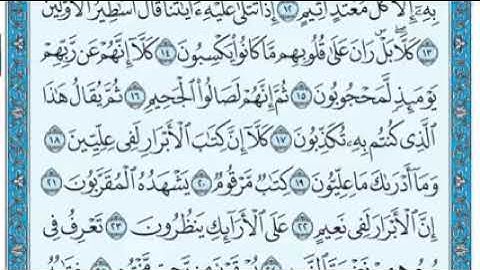 بِهِۦٓ إِلَّا كُلُّ مُعْتَدٍ أَثِيمٍ ١٢ إِذَا تُتْلَىٰ عَلَيْهِ ءَايَٰتُنَا قَالَ أَسَٰطِيرُ ٱلْأَوَّلِينَ
١٣ كَلَّا ۖ بَلْ ۜ رَانَ عَلَىٰ قُلُوبِهِم مَّا كَانُوا۟ يَكْسِبُونَ ١٤ كَلَّآ إِنَّهُمْ عَن رَّبِّهِمْ
يَوْمَئِذٍ لَّمَحْجُوبُونَ ١٥ ثُمَّ إِنَّهُمْ لَصَالُوا۟ ٱلْجَحِيمِ ١٦ ثُمَّ يُقَالُ هَٰذَا
ٱلَّذِى كُنتُم بِهِۦ تُكَذِّبُونَ ١٧ كَلَّآ إِنَّ كِتَٰبَ ٱلْأَبْرَارِ لَفِى عِلِّيِّينَ ١٨
وَمَآ أَدْرَىٰكَ مَا عِلِّيُّونَ ١٩ كِتَٰبٌ مَّرْقُومٌ ٢٠ يَشْهَدُهُ ٱلْمُقَرَّبُونَ ٢١
إِنَّ ٱلْأَبْرَارَ لَفِى نَعِيمٍ ٢٢ عَلَى ٱلْأَرَآئِكِ يَنظُرُونَ ٢٣ تَعْرِفُ فِى